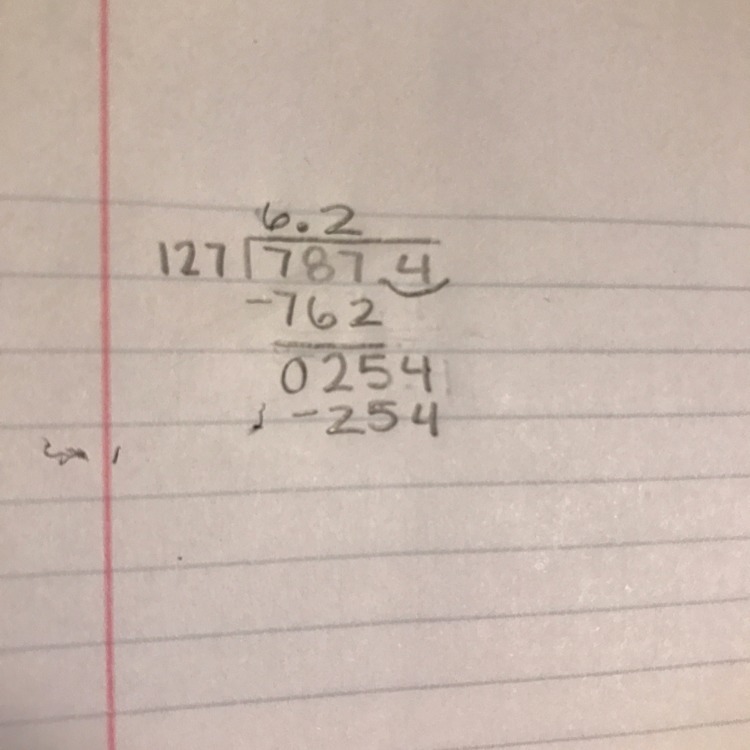 6.2
127 787.4
-762
0254
-254